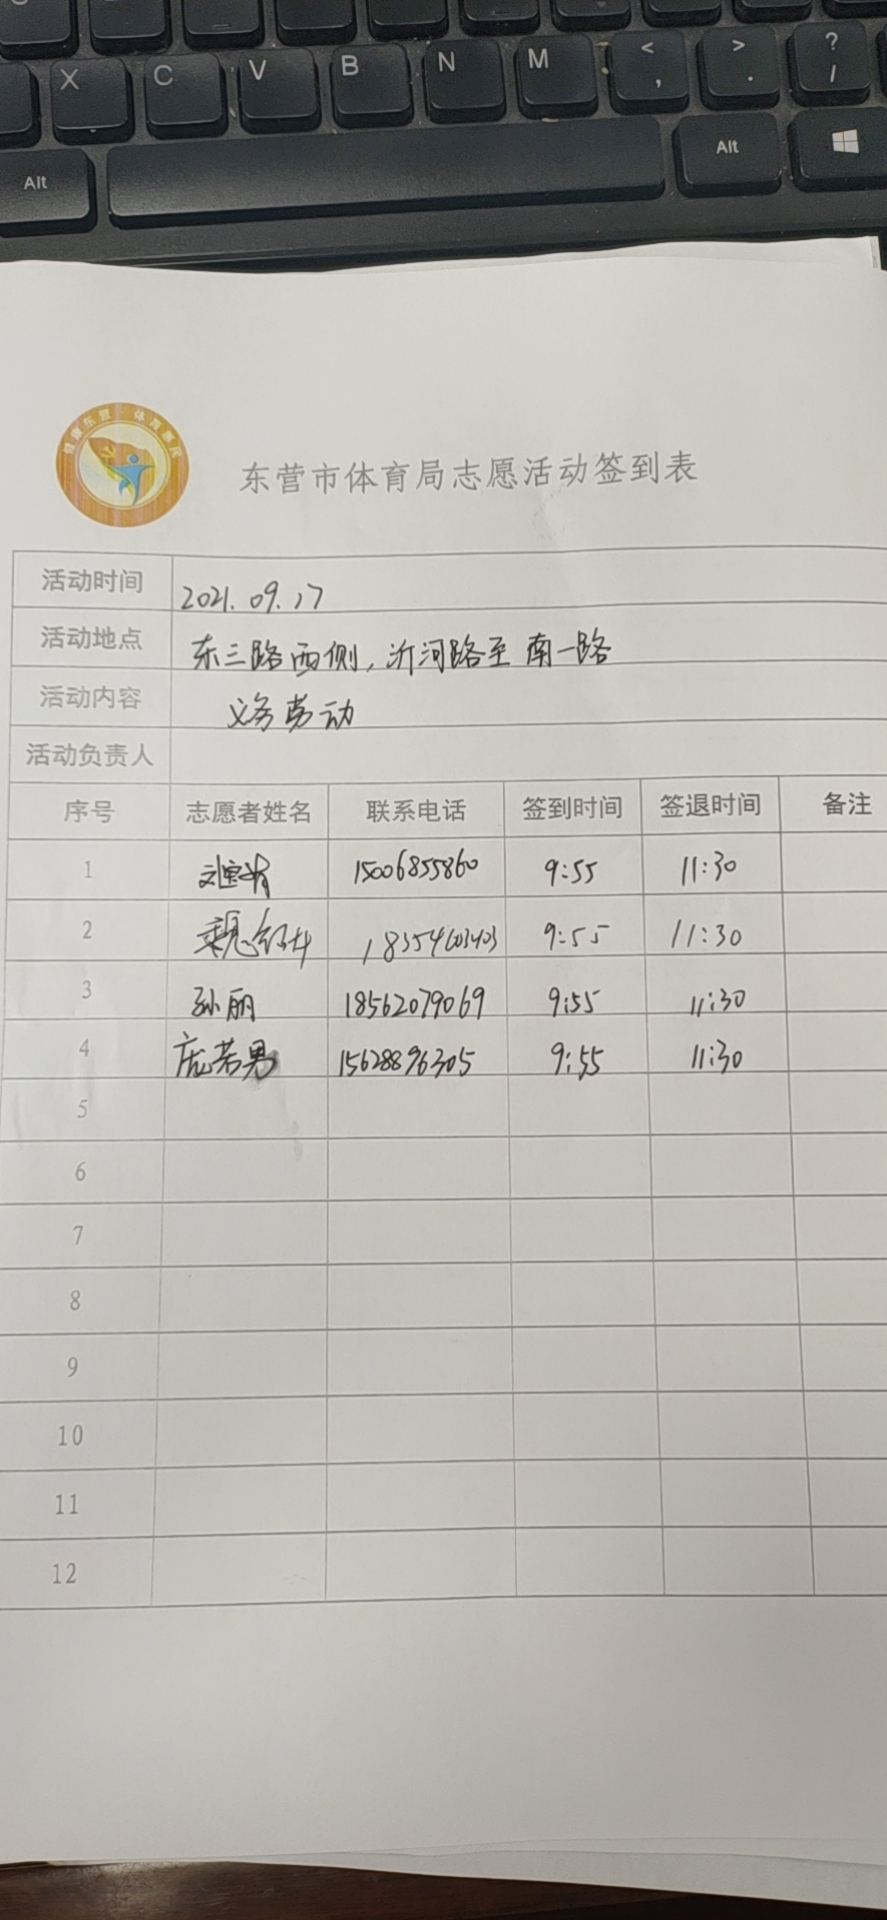 X C V B N M < , > . ? /
Alt Alt
健康东营 体育惠民
东营市体育局志愿活动签到表
活动时间 2021.09.17
活动地点 东三路西侧,沂河路至南一路
活动内容 义务劳动
活动负责人
序号 志愿者姓名 联系电话 签到时间 签退时间 备注
1 15006855860 9:55 11:30
2 9:55 11:30
3 孙丽 18562079069 9:55 11:30
4 庞若男 15628896305 9:55 11:30
5
6
7
8
9
10
11
12